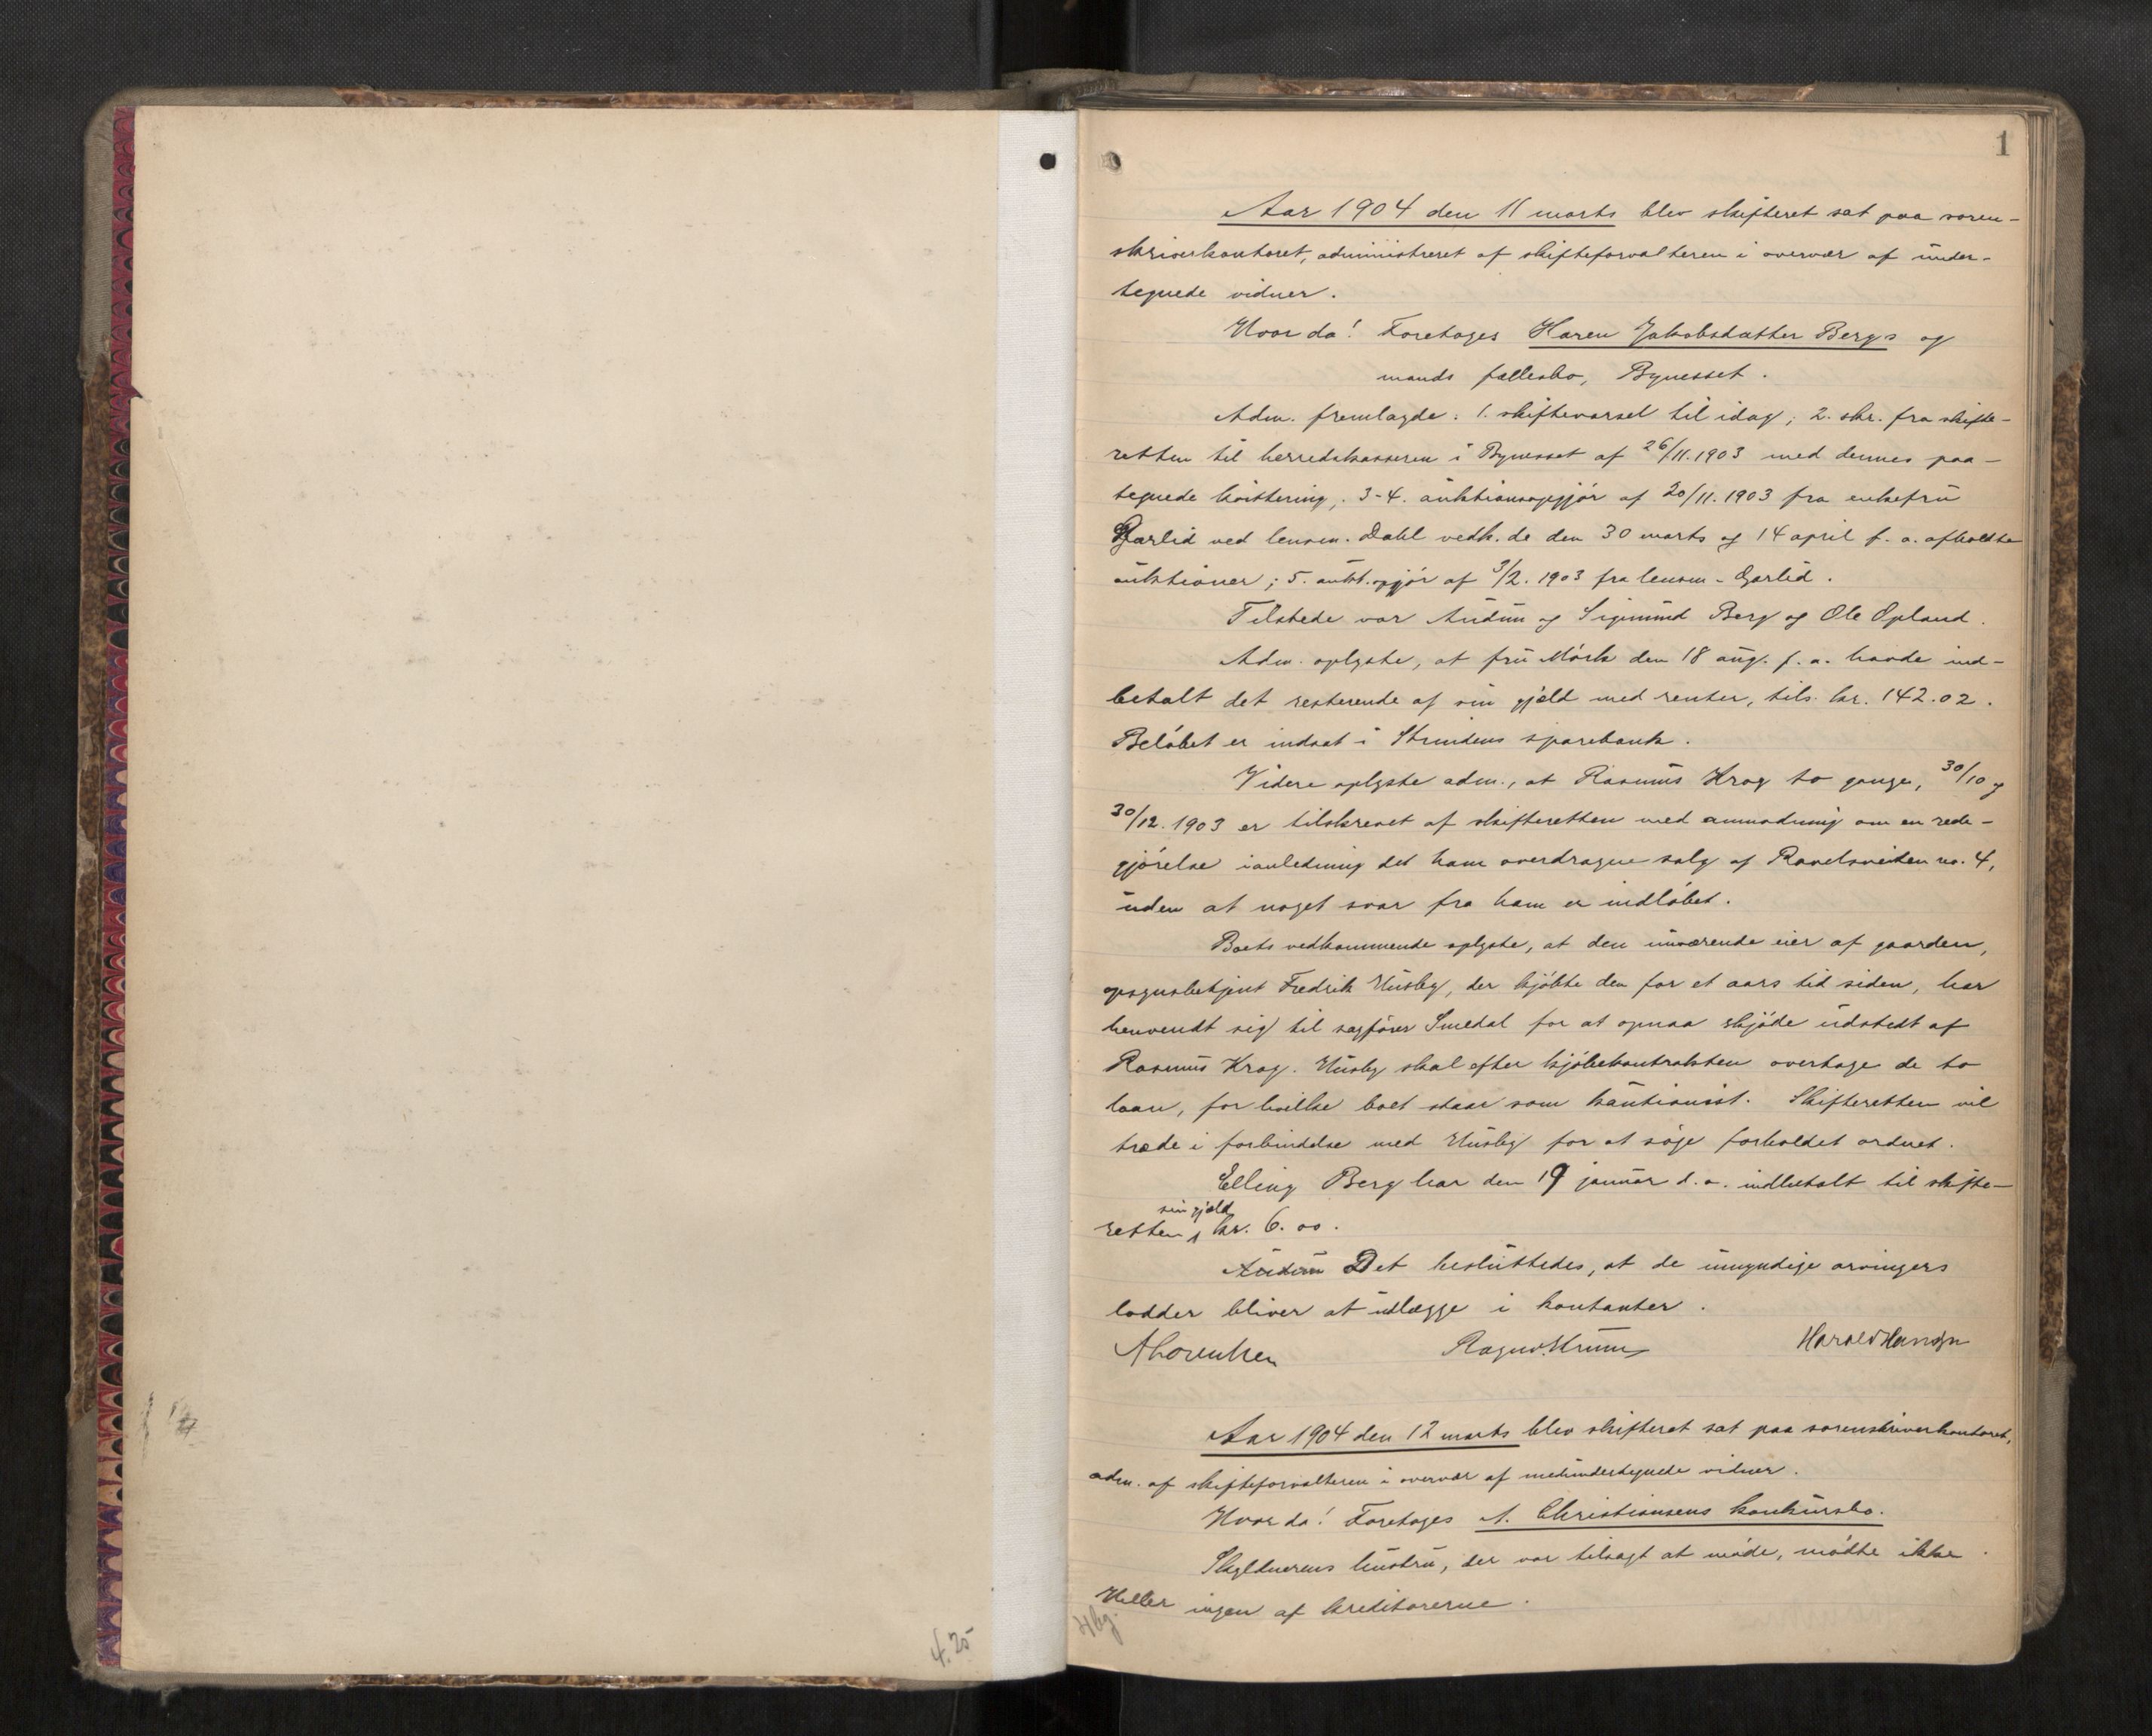 1
Aar 1904 den 11 marts blev skifteret sat paa soren-
skriverkontoret, administreret af skifteforvalteren i overvær af under-
tegnede vidner.
Hvor da! Foretoges Karen Jakobsdatter Bergs og
mands fællesbo, Bynesset.
Adm. fremlagde: 1. skiftevarsel til idag; 2. skr. fra skifte-
retten til herredskasseren i Bynesset af 26/11.1903 med dennes paa-
tegnede kvittering; 3-4. auktionsopgjør af 20/11.1903 fra enkefru
Garlid ved lensm. Dahl vedk. de den 30 marts og 14 april f. a. afholdte
auktioner; 5. aukt.opgjør af 3/2. 1903 fra lensm. Garlid.
Tilstede var Audun og Sigmund Berg og Ole Opland.
Adm. oplyste, at fru Mørk den 18 aug. f. a. havde ind-
betalt det resterende af sin gjæld med renter, tils. kr. 142.02.
Beløbet er indsat i Strindens sparebank.
Videre oplyste adm., at Rasmus Krog to gange, 30/10 og
30/12. 1903 er tilskrevet af skifteretten med anmodning om en rede-
gjørelse ianledning det ham overdragne salg af Ravelsveiten no. 4,
uden at noget svar fra ham er indløbet.
Boets vedkommende oplyste, at den nuværende eier af gaarden,
opsynsbetjent Fredrik Husby, der kjøbte den for et aars tid siden, har
henvendt sig til sagfører Smedal for at opnaa skjøde udstedt af
Rasmus Krog. Husby skal efter kjøbekontrakten overtage de to
laan, for hvilke boet staar som kautionist. Skifteretten vil
træde i forbindelse med Husby for at søge forholdet ordnet.
Elling Berg har den 19 januar d. a. indbetalt til skifte-
sin gjæld
retten, kr. 6.00.
Audun Det besluttedes, at de umyndige arvingers
lodder bliver at udlægge i kontanter.
A Lorentzen Ragnv. Krum Harald Hansen
Aar 1904 den 12 marts blev skifteret sat paa sorenskriverkontoret,
adm. af skifteforvalteren i overvær af medundertegnede vidner.
Hvor da! Foretoges A. Christiansens konkursbo.
Skyldnerens hustru, der var tilsagt at møde, mødte ikke.
Heller ingen af kreditorerne.
4.25